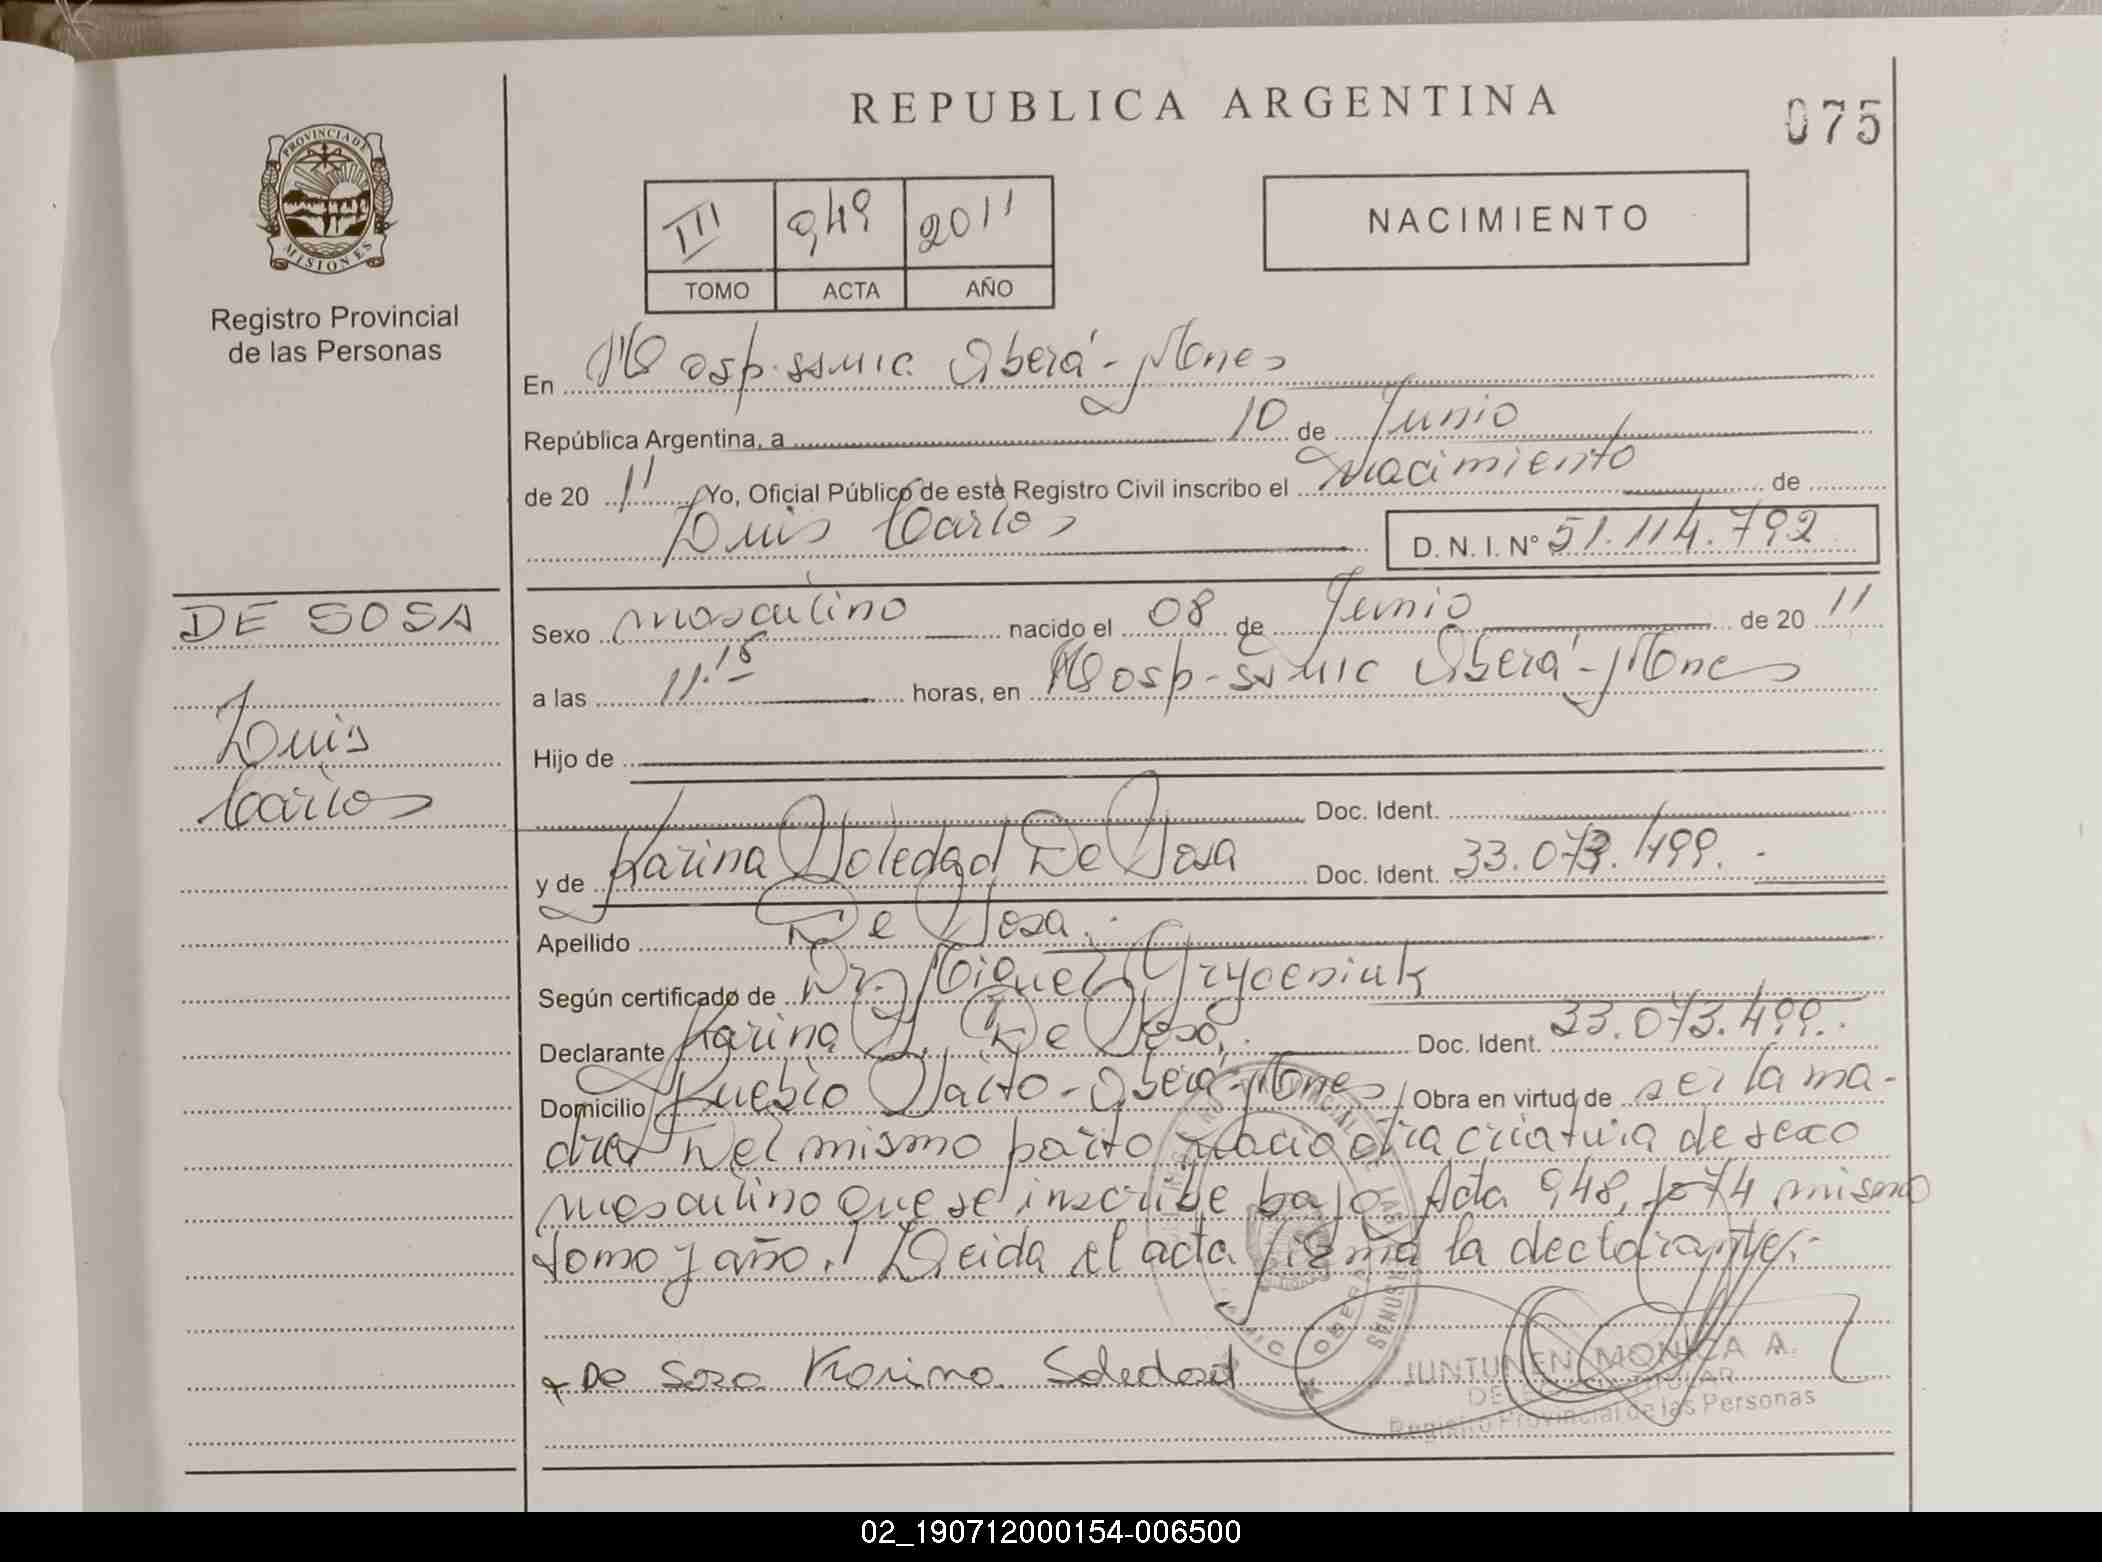 REPUBLICA ARGENTINA
075
PROVINCIA DE MISIONES
Registro Provincial
de las Personas
III 949 2011
TOMO ACTA AÑO
NACIMIENTO
En Hosp. SSMIC. Oberá - Mnes
República Argentina, a 10 de Junio
de 20 11 Yo, Oficial Público de este Registro Civil inscribo el Nacimiento de
Luis Carlos D. N. I. N° 51.114.792
DE SOSA
Luis
Carlos
Sexo masculino nacido el 08 de Junio de 20 11
a las 11.15 horas, en Hosp - SSMIC Oberá - Mnes
Hijo de
Doc. Ident.
y de Karina Soledad De Sosa Doc. Ident. 33.073.499.-
Apellido De Sosa.-
Según certificado de Dr. Miguel
Declarante Karina S. De Sosa.- Doc. Ident. 33.073.499.-
Domicilio Pueblo Salto - Oberá - Mnes / Obra en virtud de ser la ma-
dre Del mismo parto nacio otra criatura de sexo
masculino que se inscribe bajo Acta 948, fo 74 mismo
tomo y año.! Leida el acta firma la declarante.-
De Sosa Karina Soledad
JUNTUNEN MONICA A.
Registro Provincial de las Personas
OBERA
02_190712000154-006500